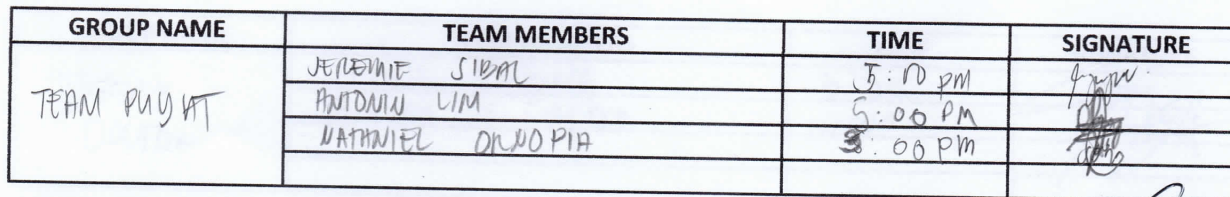 GROUP NAME TEAM MEMBERS TIME SIGNATURE
TEAM PUYAT
JEREMIE SIBAL 5:00 PM
ANTONIN LIM 5:00 PM
NATHANIEL ORNOPIA :00 PM